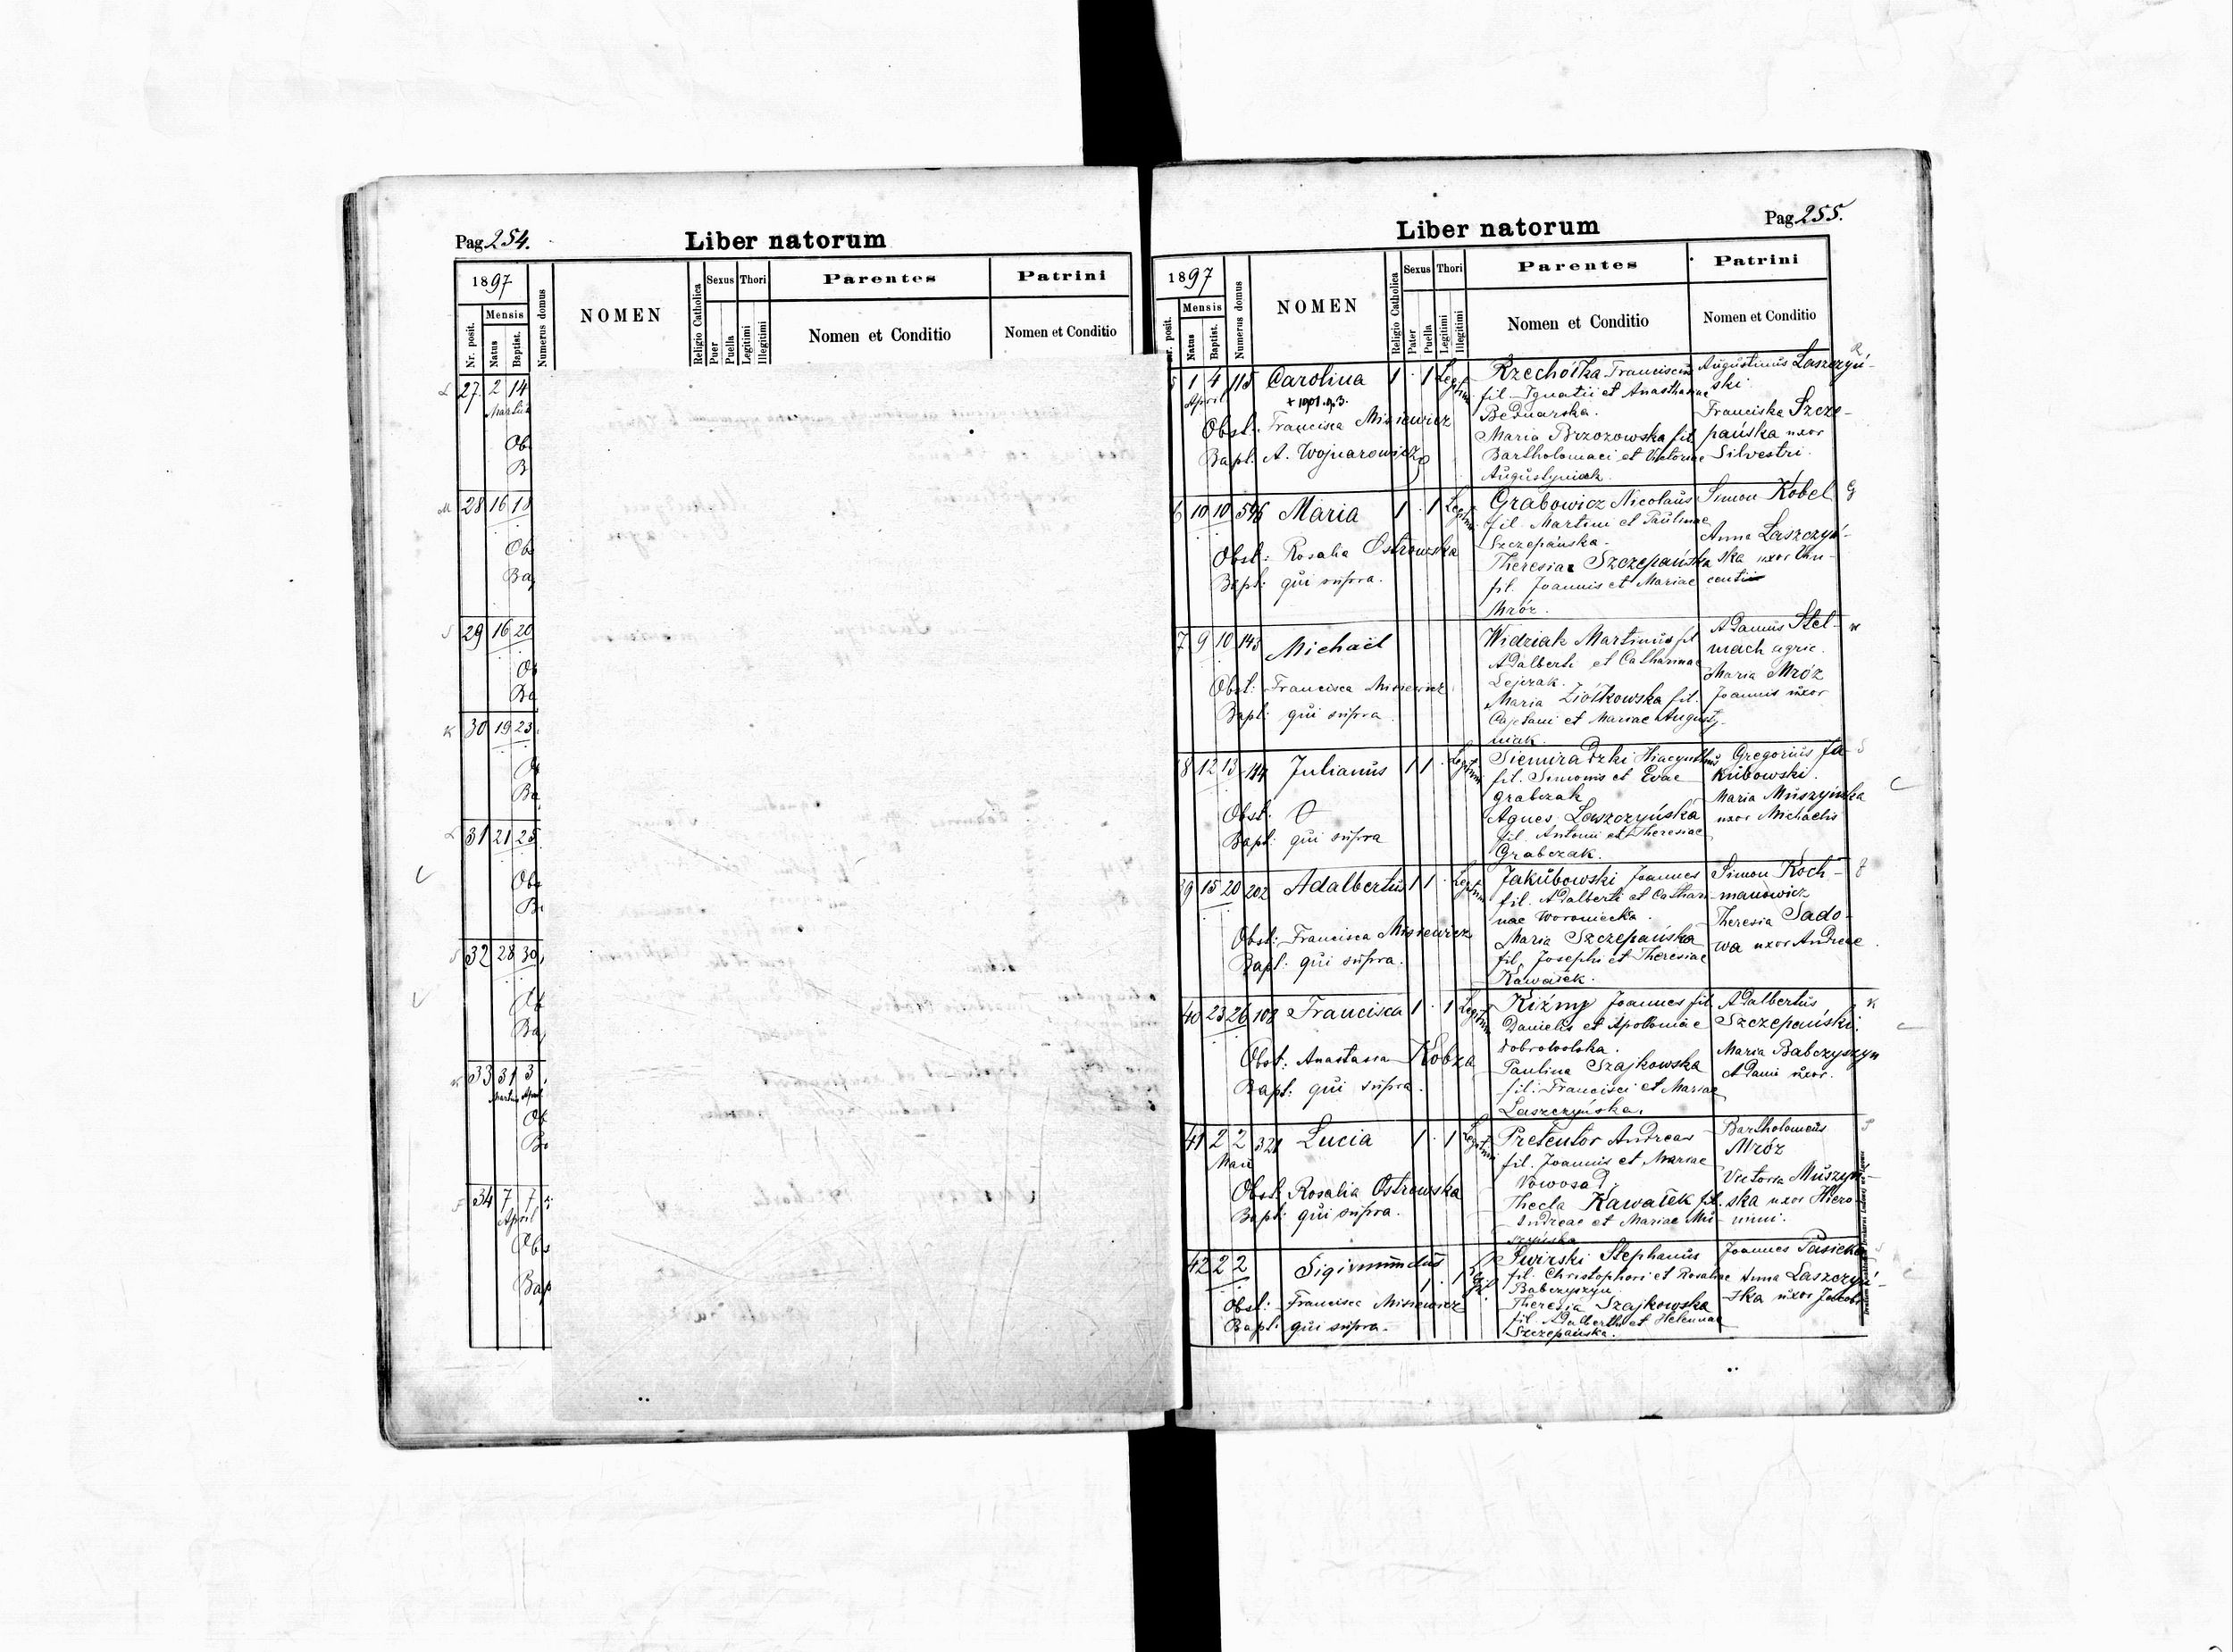 Pag 254.
Liber natorum
1897
Mensis
Nr. posit.
Natus
Baptist.
Numerus domus
NOMEN
Religio Catholica
Sexus
Puer
Puella
Thori
Legitimi
Illegitimi
Parentes
Nomen et Conditio
Patrini
Nomen et Conditio
27 2 14
28 16 18
29 16 20
30 19 23
31 21 25
32 28 30
33 31 3
34 7 7
April
Pag 255.
Liber natorum
1897
Mensis
Nr. posit.
Natus
Baptist.
Numerus domus
NOMEN
Religio Catholica
Sexus
Puer
Puella
Thori
Legitimi
Illegitimi
Parentes
Nomen et Conditio
Patrini
Nomen et Conditio
5 1 4 115 Carolina 1 1
April
+ 1901.9.3.
Obst. Francisca Misiewicz
Bapt. A. Wojnarowicz
Rzechótka Franciscus
fil. Ignatii et Anasthasiae
Bednarska.
Maria Brzozowska fil
Bartholomaei et Victoriae
Augustyniak.
Augustinus Laszczyń-
ski.
Franciska Szcze-
pańska uxor
Silvestri.
6 10 10 546 Maria 1 1
Obst: Rosalia Ostrowska
Bapt: qui supra.
Grabowicz Nicolaus
fil. Martini et Paulinae
Szczepańska.
Theresia Szczepańska
fil. Joannis et Mariae
Mróz.
Simon Kobel
Anna Laszczyń-
ska uxor Vin-
centii
7 9 10 143 Michaël
Obst: Francisca Misiewicz
Bapt: qui supra
Widziak Martinus fil
Adalberti et Catharinae
Lejczak.
Maria Ziółkowska fil.
Cajetani et Mariae Augusty-
niak.
Adamus Stel-
mach agric.
Maria Mróz
Joannis uxor
8 12 13 144 Julianus 1 1
Obst:
Bapt: qui supra
Siemiradzki Hiacynthus
fil. Simonis et Evae
Grabczak
Agnes Laszczyńska
fil. Antonii et Theresiae
Grabczak.
Gregorius Ja-
kubowski.
Maria Muszyńska
uxor Michaelis
9 15 20 202 Adalbertus 1 1
Obst: Francisca Misiewicz
Bapt: qui supra.
Jakubowski Joannes
fil. Adalberti et Cathari-
nae Woroniecka.
Maria Szczepańska
fil. Josephi et Theresiae
Kawałek.
Simon Koch-
manowicz
Theresia Sado-
wa uxor Andreae.
40 23 26 108 Francisca 1 1
Obst: Anastasia Kobza
Bapt: qui supra.
Kiźny Joannes fil
Danielis et Apolloniae
Dobrowolska.
Paulina Szajkowska
fil. Francisci et Mariae
Laszczyńska.
Adalbertus
Szczepański.
Maria Babczyszyn
Adami uxor.
41 2 2 321 Lucia 1 1
Maii
Obst: Rosalia Ostrowska
Bapt: qui supra.
Pretentor Andreas
fil. Joannis et Mariae
Nowosad.
Thecla Kawałek fil.
Andreae et Mariae Mu-
szyńska
Bartholomeus
Mróz
Victoria Muszyń-
ska uxor Hiero-
nimi.
42 2 2 Sigismundus 1 1
Obst: Francisca Misiewicz
Bapt: qui supra.
Świrski Stephanus
fil. Christophori et Rosaliae
Babczyszyn
Theresia Szajkowska
fil. Adalberti et Helenae
Szczepańska.
Joannes Pasieka
Anna Laszczyń-
ska uxor Jacobi